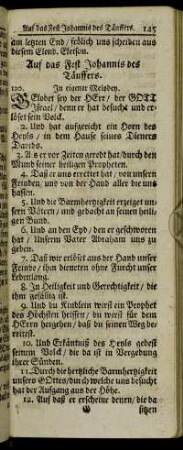 Auf das Fest Johannis des Täuffers. 145
am letzten End/ frölich uns scheiden aus
diesem Elend. Eleison.
Auf das Fest Johannis des
Täuffers.
120. In eigener Melodey.
GElobet sey der HErr/ der GOTT
Israel/ denn er hat besucht und er-
löset sein Volck.
2. Und hat aufgericht ein Horn des
Heyls/ in dem Hause seines Dieners
Davids.
3. Als er vor Zeiten geredt hat/ durch den
Mund seiner heiligen Propheten.
4. Daß er uns errettet hat/ von unsern
Feinden/ und von der Hand aller die uns
hassen.
5. Und die Barmhertzigkeit erzeiget unsern
Vätern/ und gedacht an seinen heili-
gen Bund.
6. Und an den Eyd/ den er geschworen
hat/ Unserm Vater Abraham uns zu
geben.
7. Daß wir erlöset aus der Hand unser
Feinde/ ihm dieneten ohne Furcht unser
Lebenlang.
8. In Heiligkeit und Gerechtigkeit/ die
ihm gefällig ist.
9. Und du Kindlein wirst ein Prophet
des Höchsten heissen/ du wirst für dem
HErrn hergehen/ daß du seinen Weg be-
reitest.
10. Und Erkäntniß des Heyls gebest
seinem Volck/ die da ist in Vergebung
ihrer Sünden.
11. Durch die hertzliche Barmhertzigkeit
unsers GOttes/ durch welche uns besucht
hat der Aufgang aus der Höhe.
12. Auf daß er erscheine denen/ die da
sitzen